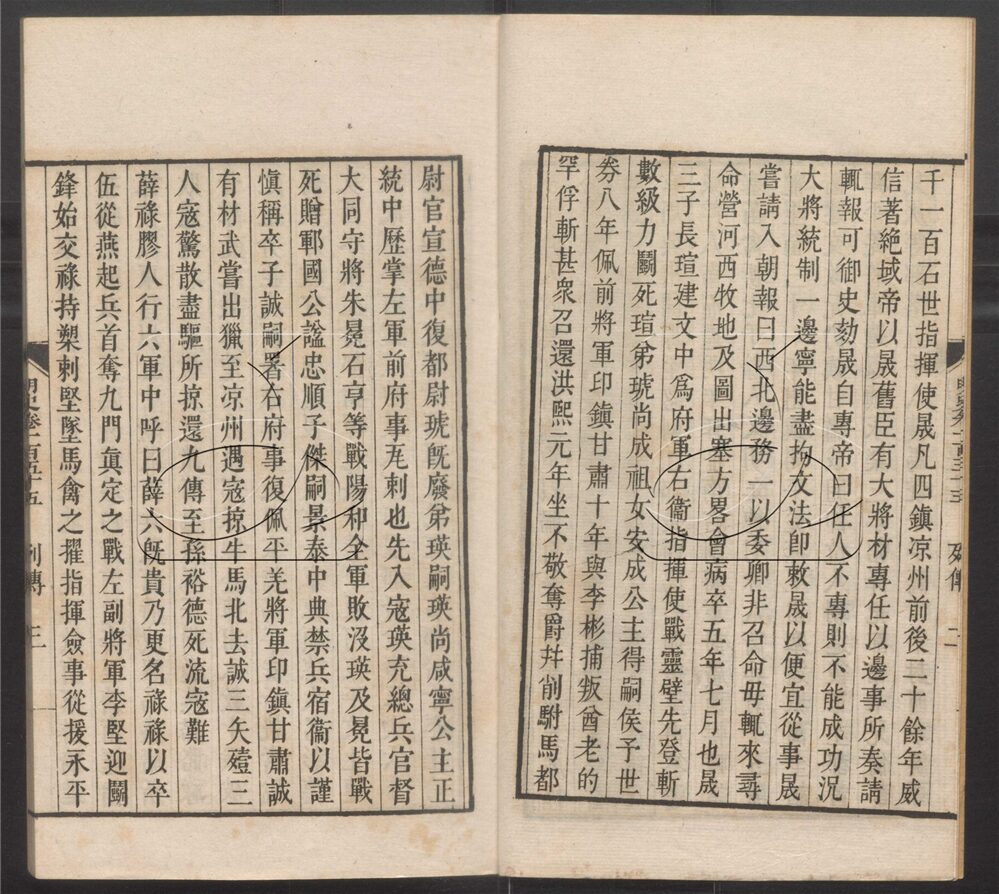 千一百石世指揮使晟凡四鎮凉州前後二十餘年威
信著絶域帝以晟舊臣有大將材專任以邊事所奏請
輒報可御史劾晟自專帝曰任人不專則不能成功況
大將統制一邊寧能盡拘文法卽敕晟以便宜從事晟
嘗請入朝報曰西北邊務一以委卿非召命毋輒來尋
命營河西牧地及圖出塞方畧會病卒五年七月也晟
三子長瑄建文中爲府軍右衞指揮使戰靈壁先登斬
數級力鬭死瑄弟琥尚成祖女安成公主得嗣侯予世
券八年佩前將軍印鎮甘肅十年與李彬捕叛酋老的
罕俘斬甚衆召還洪熙元年坐不敬奪爵幷削駙馬都
尉官宣德中復都尉琥旣廢弟瑛嗣瑛尚咸寧公主正
統中歷掌左軍前府事瓦剌也先入寇瑛充總兵官督
大同守將朱冕石亨等戰陽和全軍敗沒瑛及冕皆戰
死贈鄆國公諡忠順子傑嗣景泰中典禁兵宿衞以謹
愼稱卒子誠嗣署右府事復佩平羌將軍印鎮甘肅誠
有材武嘗出獵至凉州遇寇掠牛馬北去誠三矢殪三
人寇驚散盡驅所掠還九傳至孫裕德死流寇難
薛祿膠人行六軍中呼曰薛六旣貴乃更名祿祿以卒
伍從燕起兵首奪九門眞定之戰左副將軍李堅迎鬭
鋒始交祿持槊刺堅墜馬禽之擢指揮僉事從援永平
明史卷一百五十五 列傳 三